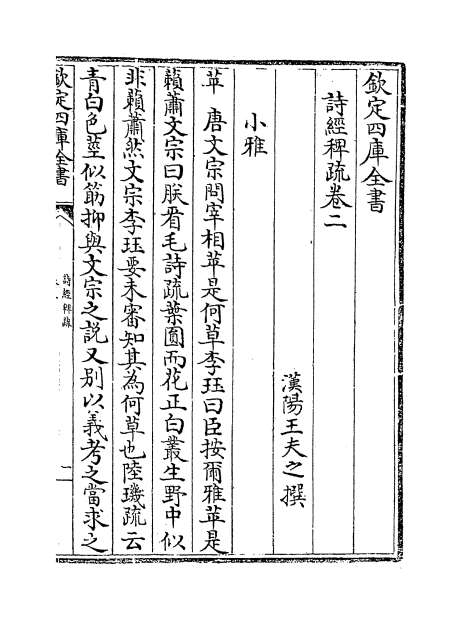 欽定四庫全書
詩經稗疏卷二
漢陽王夫之撰
小雅
苹 唐文宗問宰相苹是何草李珏曰臣按爾雅苹是
藾蕭文宗曰朕看毛詩疏葉圓而花正白叢生野中似
非藾蕭然文宗李珏要未審知其為何草也陸璣疏云
青白色莖似筯抑與文宗之說又別以義考之當求之
欽定四庫全書
詩經稗疏